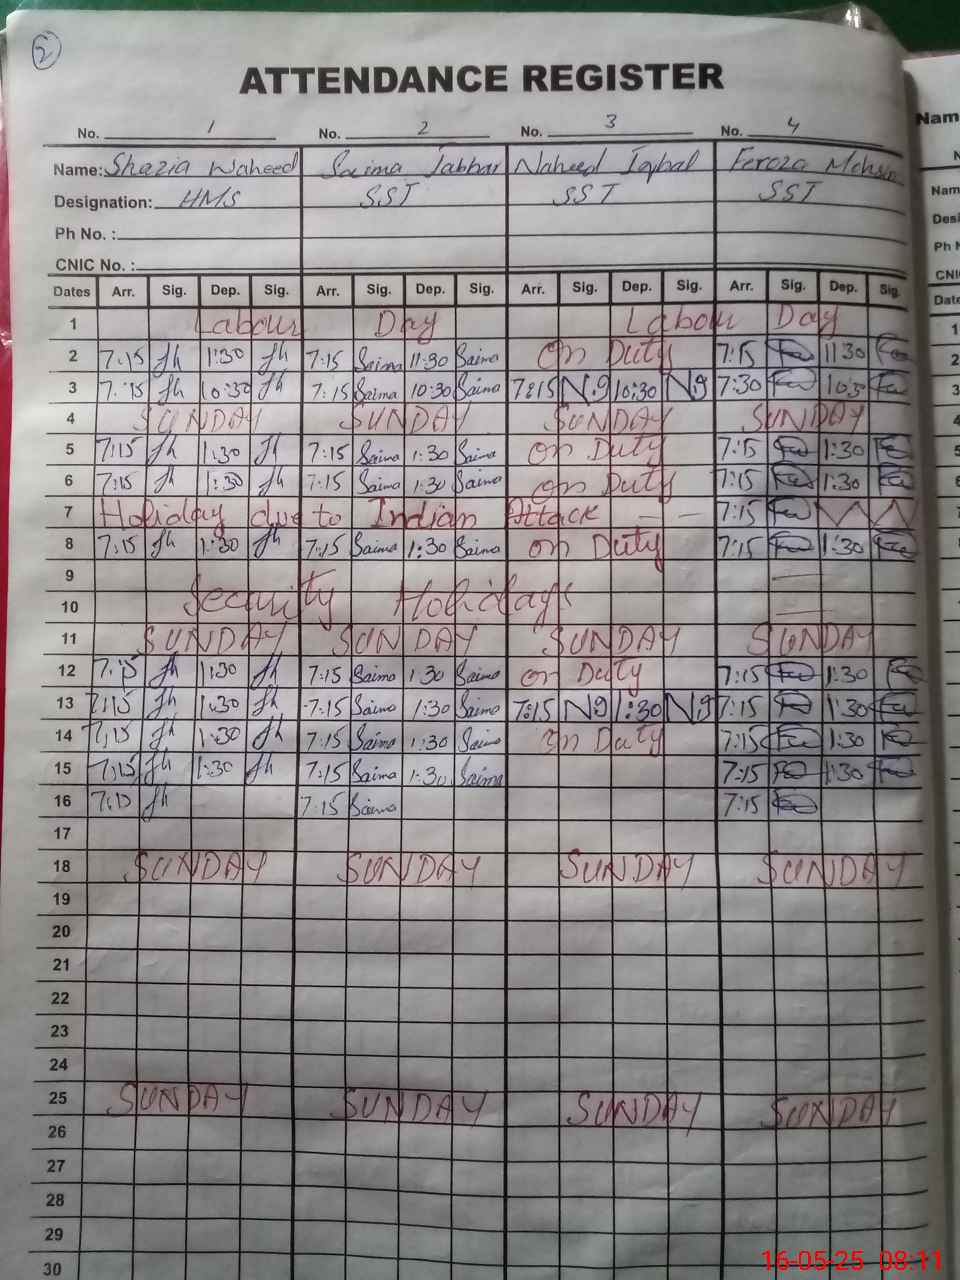 2
ATTENDANCE REGISTER
No. 1 No. 2 No. 3 No. 4
Name: Shazia Waheed Saima Jabbar Naheed Iqbal Feroza Mohsin
Designation: HMS SST SST SST
Ph No. :
CNIC No. :
Dates Arr. Sig. Dep. Sig. Arr. Sig. Dep. Sig. Arr. Sig. Dep. Sig. Arr. Sig. Dep. Sig.
1 Labour Day Labour Day
2 7:15 1:30 7:15 Saima 11:30 Saima On Duty 7:15 11:30
3 7:15 10:30 7:15 Saima 10:30 Saima 7:15 N9 10:30 N9 7:30 10:30
4 SUNDAY SUNDAY SUNDAY SUNDAY
5 7:15 1:30 7:15 Saima 1:30 Saima On Duty 7:15 1:30
6 7:15 1:30 7:15 Saima 1:30 Saima On Duty 7:15 1:30
7 Holiday due to Indian Attack 7:15
8 7:15 1:30 7:15 Saima 1:30 Saima On Duty 7:15 1:30
9
10 Security Holidays
11 SUNDAY SUNDAY SUNDAY SUNDAY
12 7:15 1:30 7:15 Saima 1:30 Saima On Duty 7:15 1:30
13 7:15 1:30 7:15 Saima 1:30 Saima 7:15 N9 1:30 N9 7:15 1:30
14 7:15 1:30 7:15 Saima 1:30 Saima On Duty 7:15 1:30
15 7:15 1:30 7:15 Saima 1:30 Saima 7:15 1:30
16 7:15 7:15 Saima 7:15
17
18 SUNDAY SUNDAY SUNDAY SUNDAY
19
20
21
22
23
24
25 SUNDAY SUNDAY SUNDAY SUNDAY
26
27
28
29
30
16-05-25 08:11